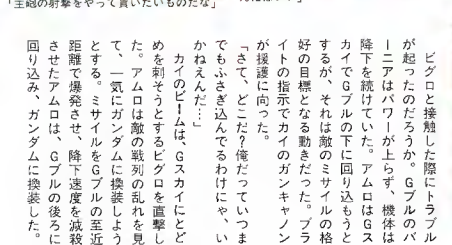 「主砲の射撃をやって貰いたいものだな」
ビグロと接触した際にトラブル
が起ったのだろうか。Gブルのバ
ーニアはパワーが上らず、機体は
降下を続けていた。アムロはGス
カイでGブルの下に回り込もうと
するが、それは敵のミサイルの格
好の目標となる動きだった。ブラ
イトの指示でカイのガンキャノン
が援護に向った。
「さて、どこだ?俺だっていつま
でもふさぎ込んでるわけにゃ、い
かねえんだ…」
カイのビームは、Gスカイにとど
めを刺そうとするビグロを直撃し
た。アムロは敵の戦列の乱れを見
て、一気にガンダムに換装しよう
とする。ミサイルをGブルの至近
距離で爆発させ、降下速度を減殺
させたアムロは、Gブルの後ろに
回り込み、ガンダムに換装した。